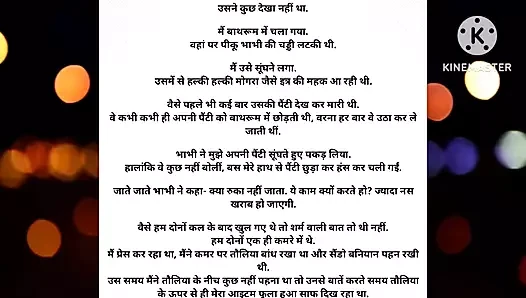 उसने कुछ देखा नहीं था.
मैं बाथरूम में चला गया.
वहां पर पीकू भाभी की चड्डी लटकी थी.
मैं उसे सूंघने लगा.
उसमें से हल्की हल्की मोगरा जैसे इत्र की महक आ रही थी.
वैसे पहले भी कई बार उसकी पैंटी देख कर मारी थी.
वे कभी कभी ही अपनी पैंटी को बाथरूम में छोड़ती थी, वरना हर बार वे उठा कर ले
जाती थीं.
भाभी ने मुझे अपनी पैंटी सूंघते हुए पकड़ लिया.
हालांकि वे कुछ नहीं बोलीं, बस मेरे हाथ से पैंटी छुड़ा कर हंस कर चली गईं.
जाते जाते भाभी ने कहा- क्या रुका नहीं जाता. ये काम क्यों करते हो? ज्यादा नस
खराब हो जाएगी.
वैसे हम दोनों कल के बाद खुल गए थे तो शर्म वाली बात तो थी नहीं.
हम दोनों एक ही कमरे में थे.
मैं प्रेस कर रहा था, मैंने कमर पर तौलिया बांध रखा था और सैंडो बनियान पहन रखी
थी.
उस समय मैंने तौलिया के नीच कुछ नहीं पहना था तो उनसे बातें करते समय तौलिया
के ऊपर से ही मेरा आइटम फूला हुआ साफ दिख रहा था.
KINEMASTER